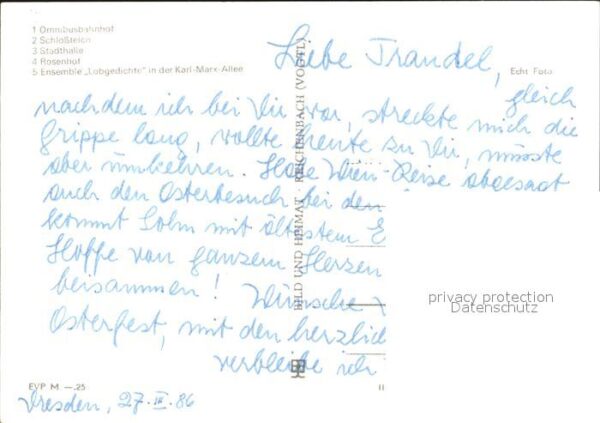 1 Omnibusbahnhof
2 Schloßteich
3 Stadthalle
4 Rosenhof
5 Ensemble „Lobgedichte" in der Karl-Marx-Allee
Echt Foto
Liebe Trandel,
gleich
nachdem ich bei Dir war, streckte mich die
Grippe lang, wollte heute zu Dir, müsste
aber umkehren. Habe Wien-Reise abgesagt
auch den Osterbesuch bei den
kommt Sohn mit ältestem E
Hoffe von ganzem Herzen
beisammen! Wünsche
Osterfest, mit den herzlic
verbleibe ich
BILD UND HEIMAT · REICHENBACH (VOGTL)
privacy protection
Datenschutz
EVP M —.25
II
Dresden, 27. III. 86